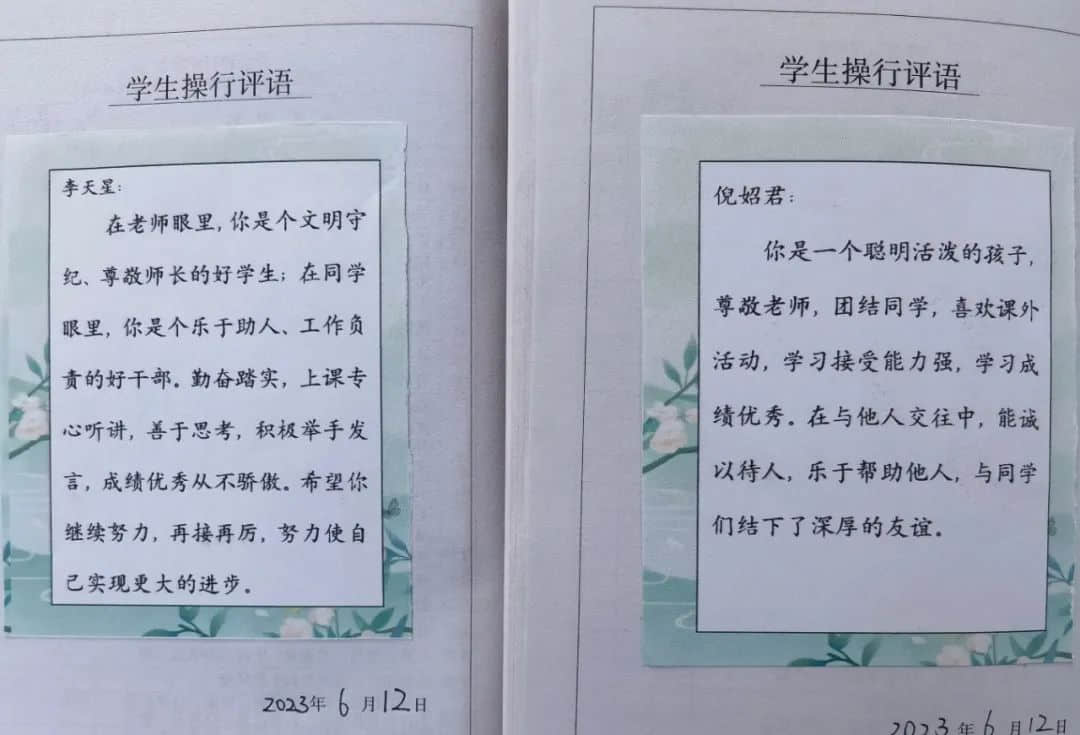 学生操行评语
李天星：
在老师眼里，你是个文明守
纪、尊敬师长的好学生；在同学
眼里，你是个乐于助人、工作负
责的好干部。勤奋踏实，上课专
心听讲，善于思考，积极举手发
言，成绩优秀从不骄傲。希望你
继续努力，再接再厉，努力使自
己实现更大的进步。
2023年6月12日
学生操行评语
倪妱君：
你是一个聪明活泼的孩子，
尊敬老师，团结同学，喜欢课外
活动，学习接受能力强，学习成
绩优秀。在与他人交往中，能诚
以待人，乐于帮助他人，与同学
们结下了深厚的友谊。
2023年6月12日